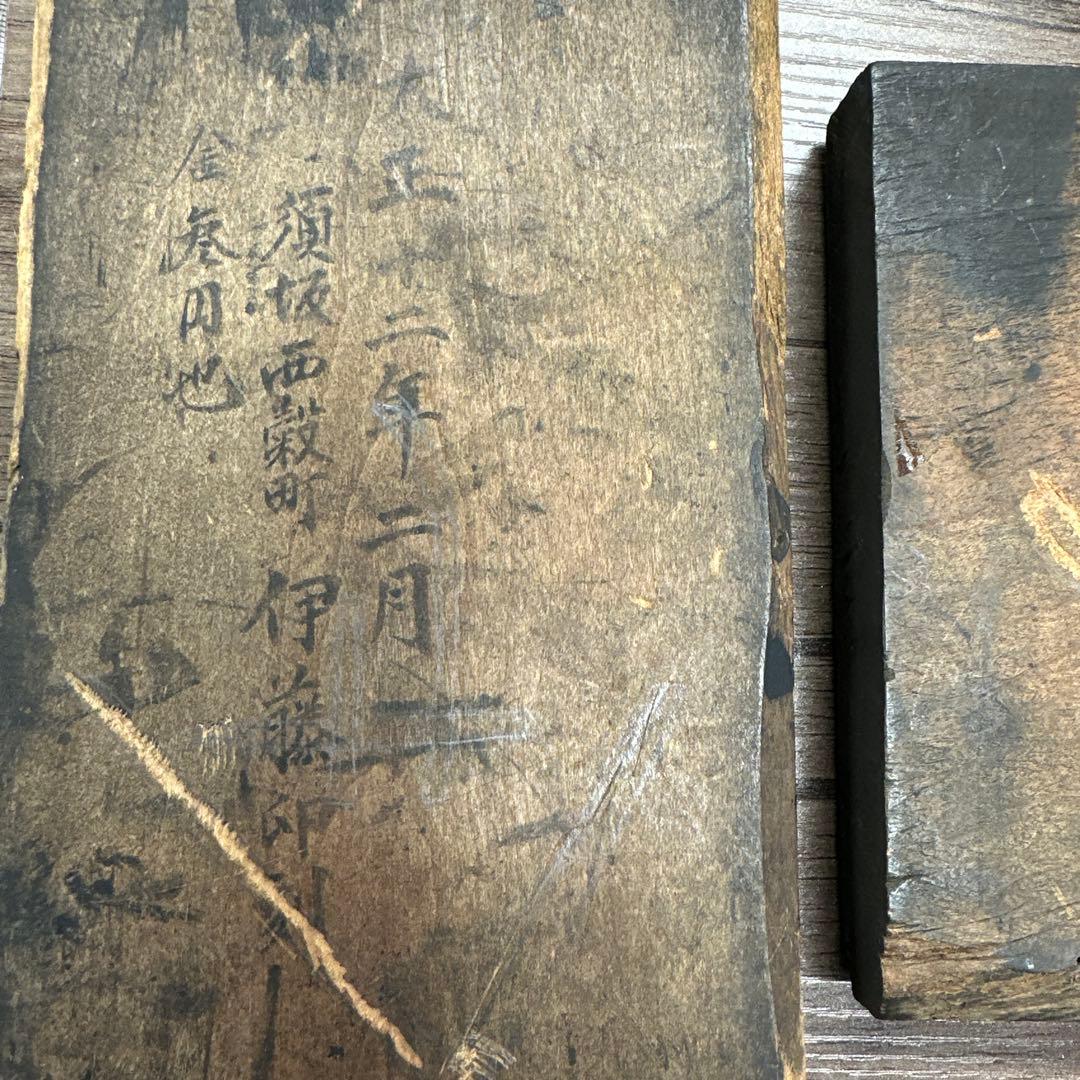 大正十二年二月
須坂西穀町 伊藤印刷
金叁円也